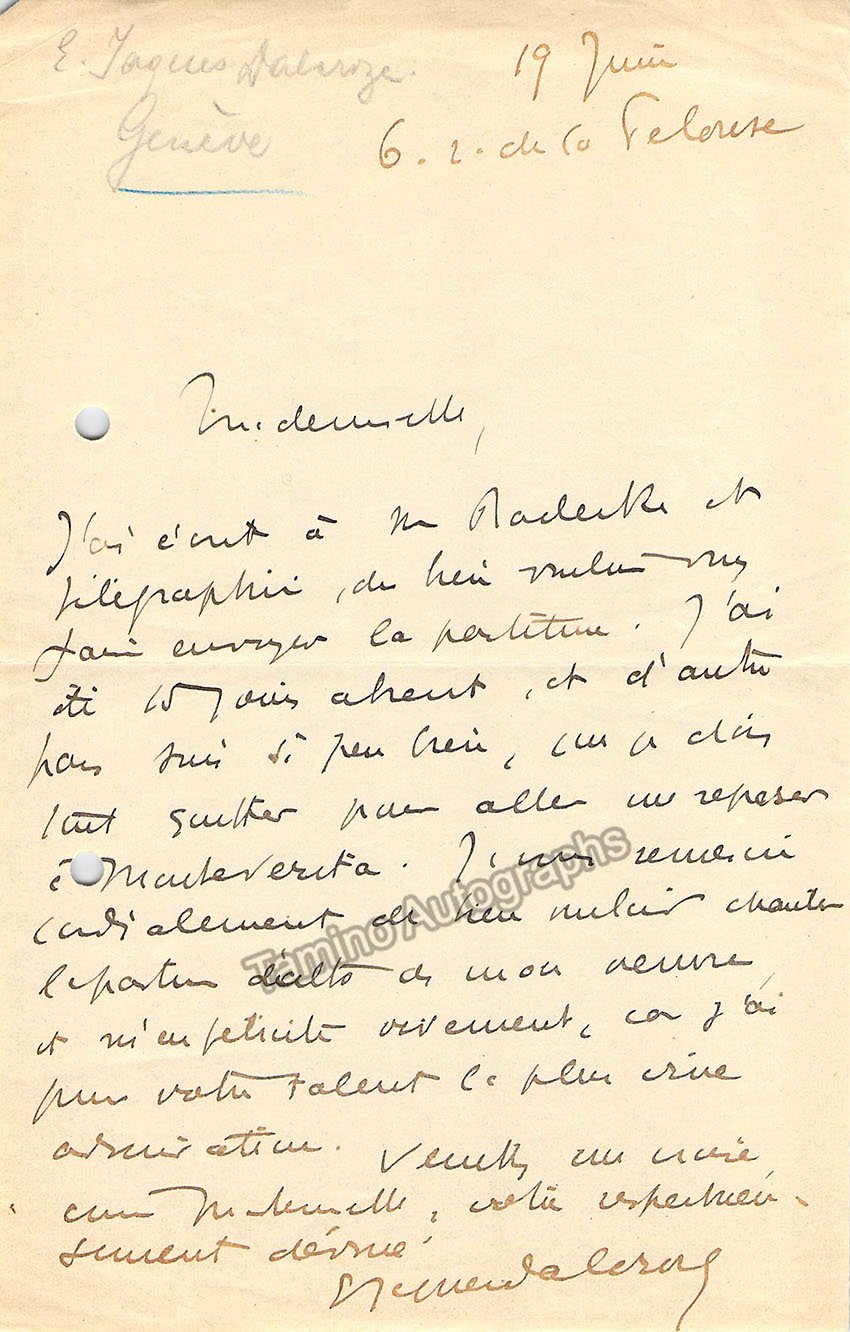 E. Jaques Dalcroze.
Genève
19 Juin
6. r. de la Pelouse
Mademoiselle,
J'ai écrit à Mr Radecke et
télégraphié, de bien vouloir vous
faire envoyer la partition. J'ai
été 15 jours absent, et d'autre
part suis si peu bien, que je dois
tout quitter pour aller me reposer
à Monteverita. Je vous remercie
cordialement de bien vouloir chanter
la partie d'alto de mon oeuvre,
et m'en félicite vivement, car j'ai
pour votre talent la plus vive
admiration. Veuillez me croire,
chère Mademoiselle, votre respectueu-
sement dévoué,
E Jaques Dalcroze
Tamino Autographs